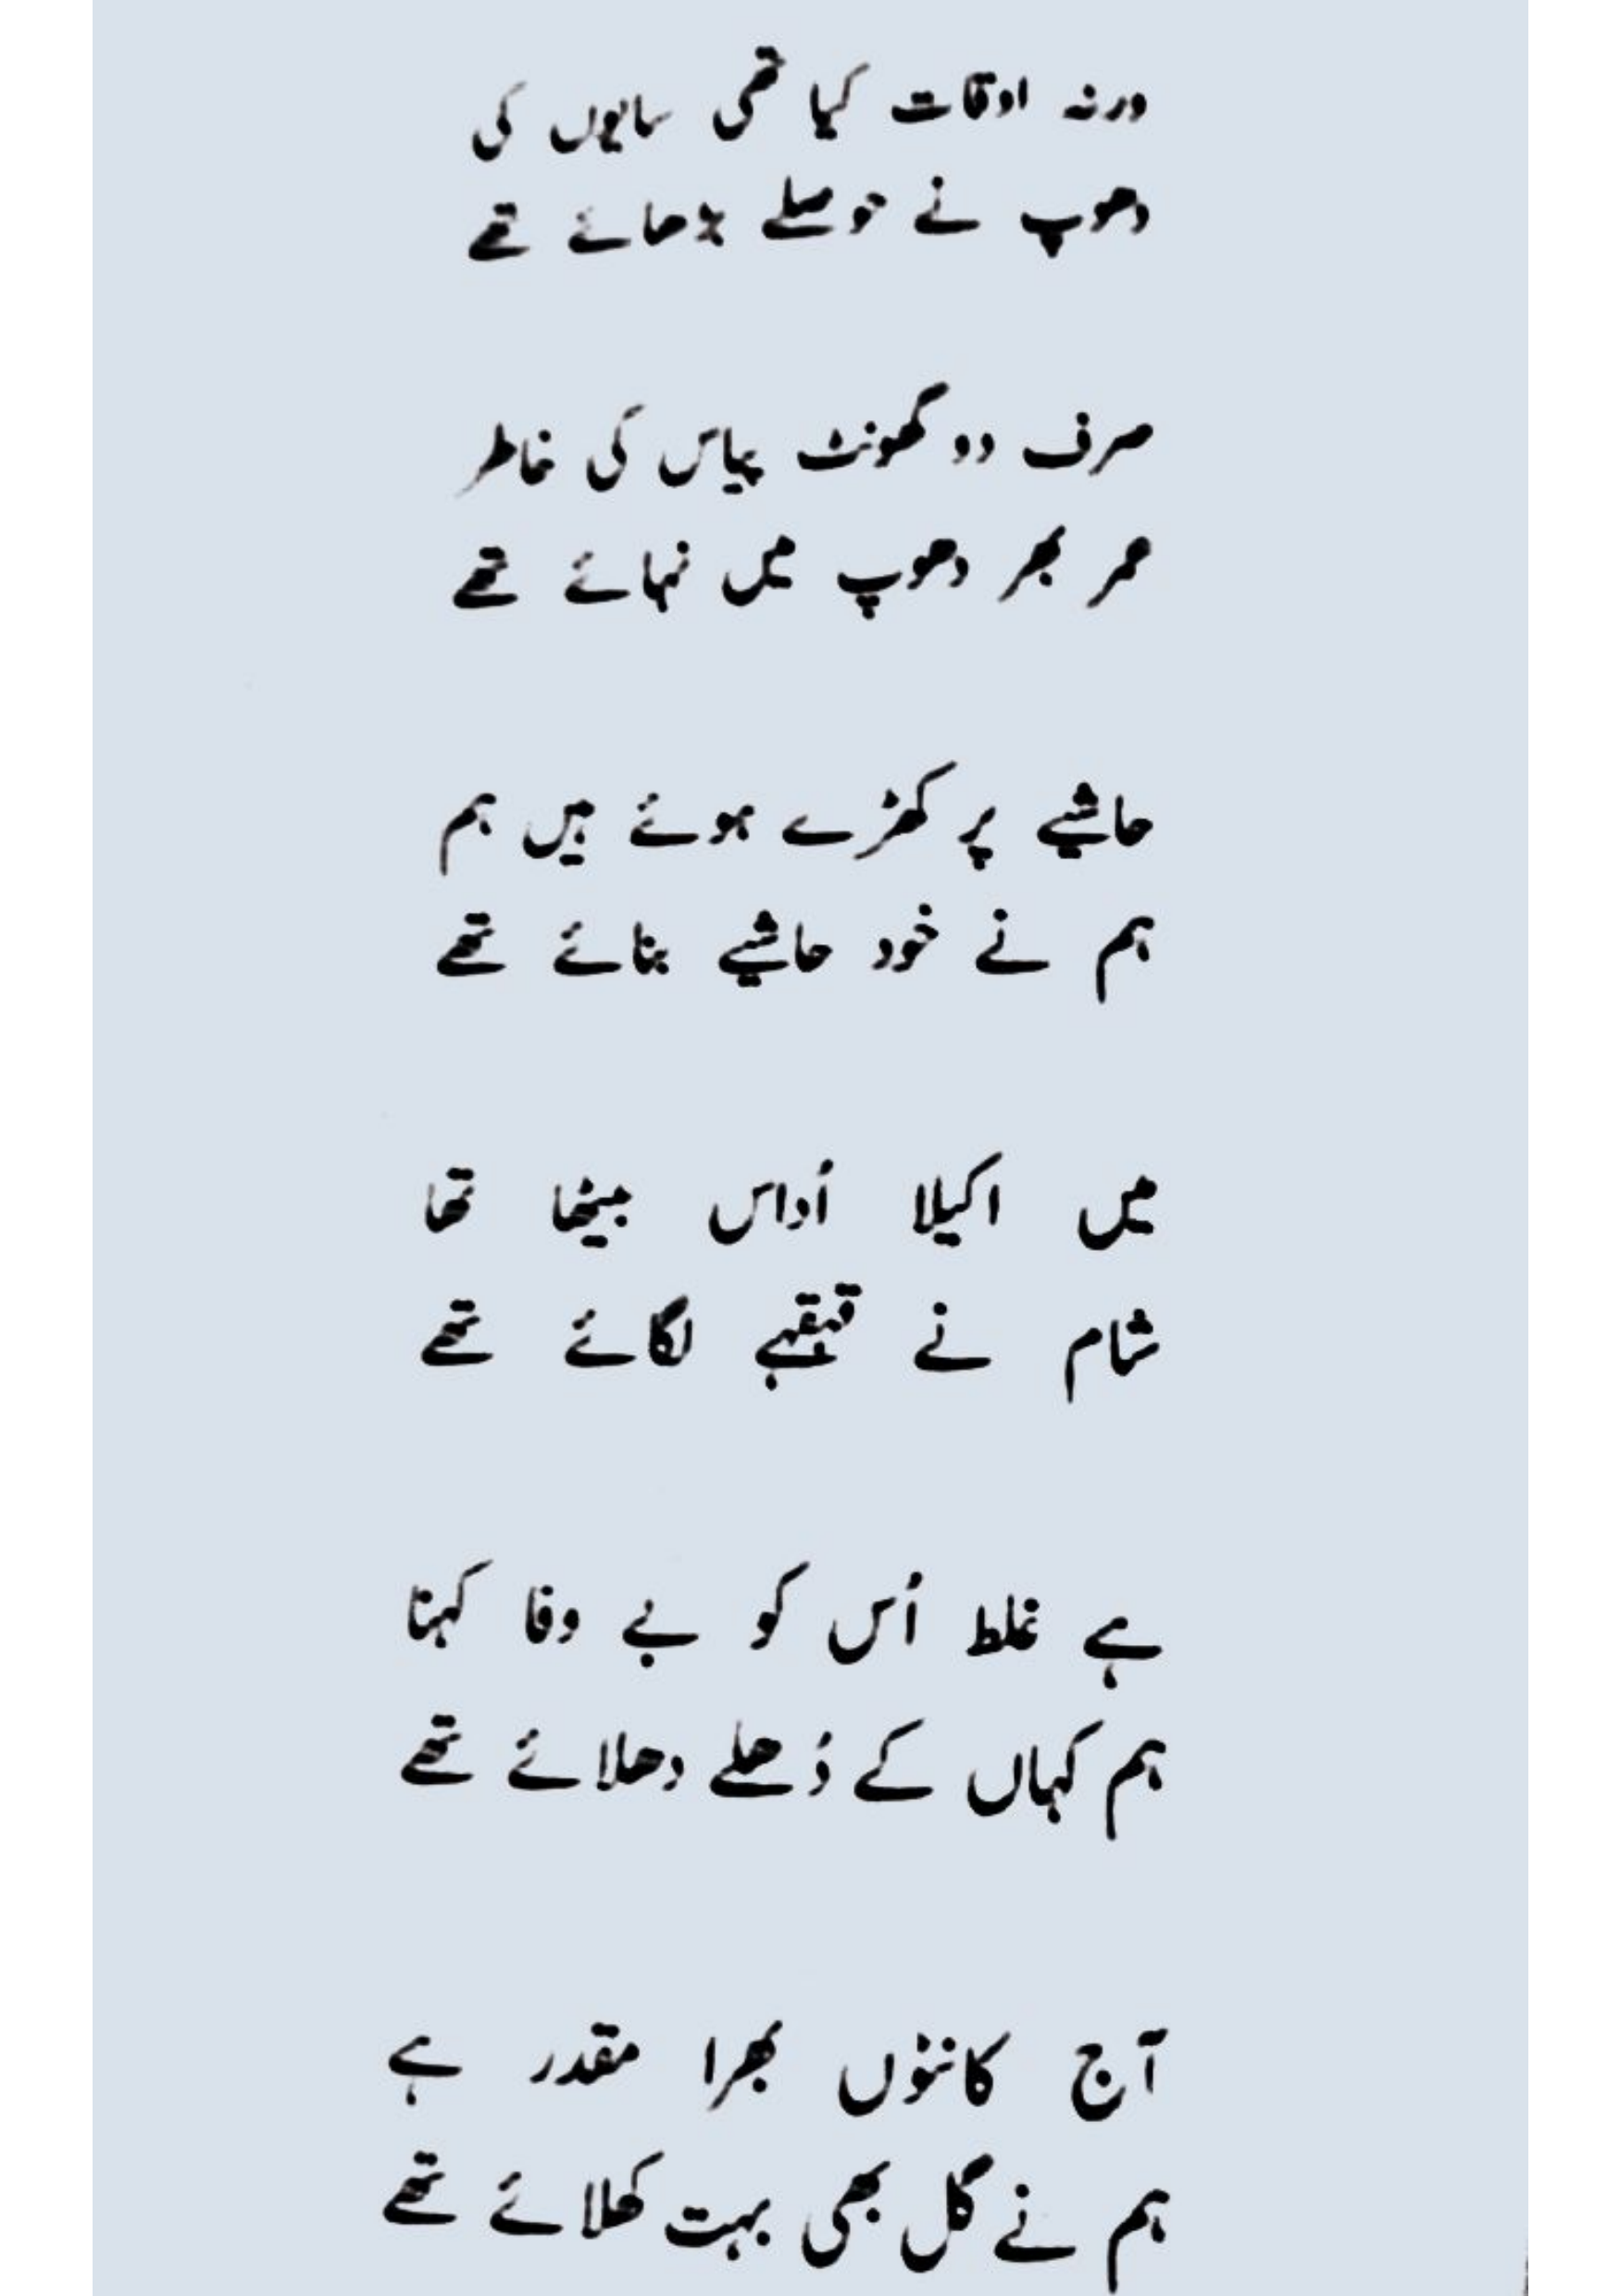 ورنہ اوقات کیا تھی سایوں کی
دھوپ نے حوصلے بڑھائے تھے
صرف دو گھونٹ پیاس کی خاطر
عمر بھر دھوپ میں نہائے تھے
حاشیے پر کھڑے ہوئے ہیں ہم
ہم نے خود حاشیے بنائے تھے
میں اکیلا اُداس بیٹھا تھا
شام نے قہقہے لگائے تھے
ہے غلط اُس کو بے وفا کہنا
ہم کہاں کے دُھلے دھلائے تھے
آج کانٹوں بھرا مقدر ہے
ہم نے گل بھی بہت کھلائے تھے